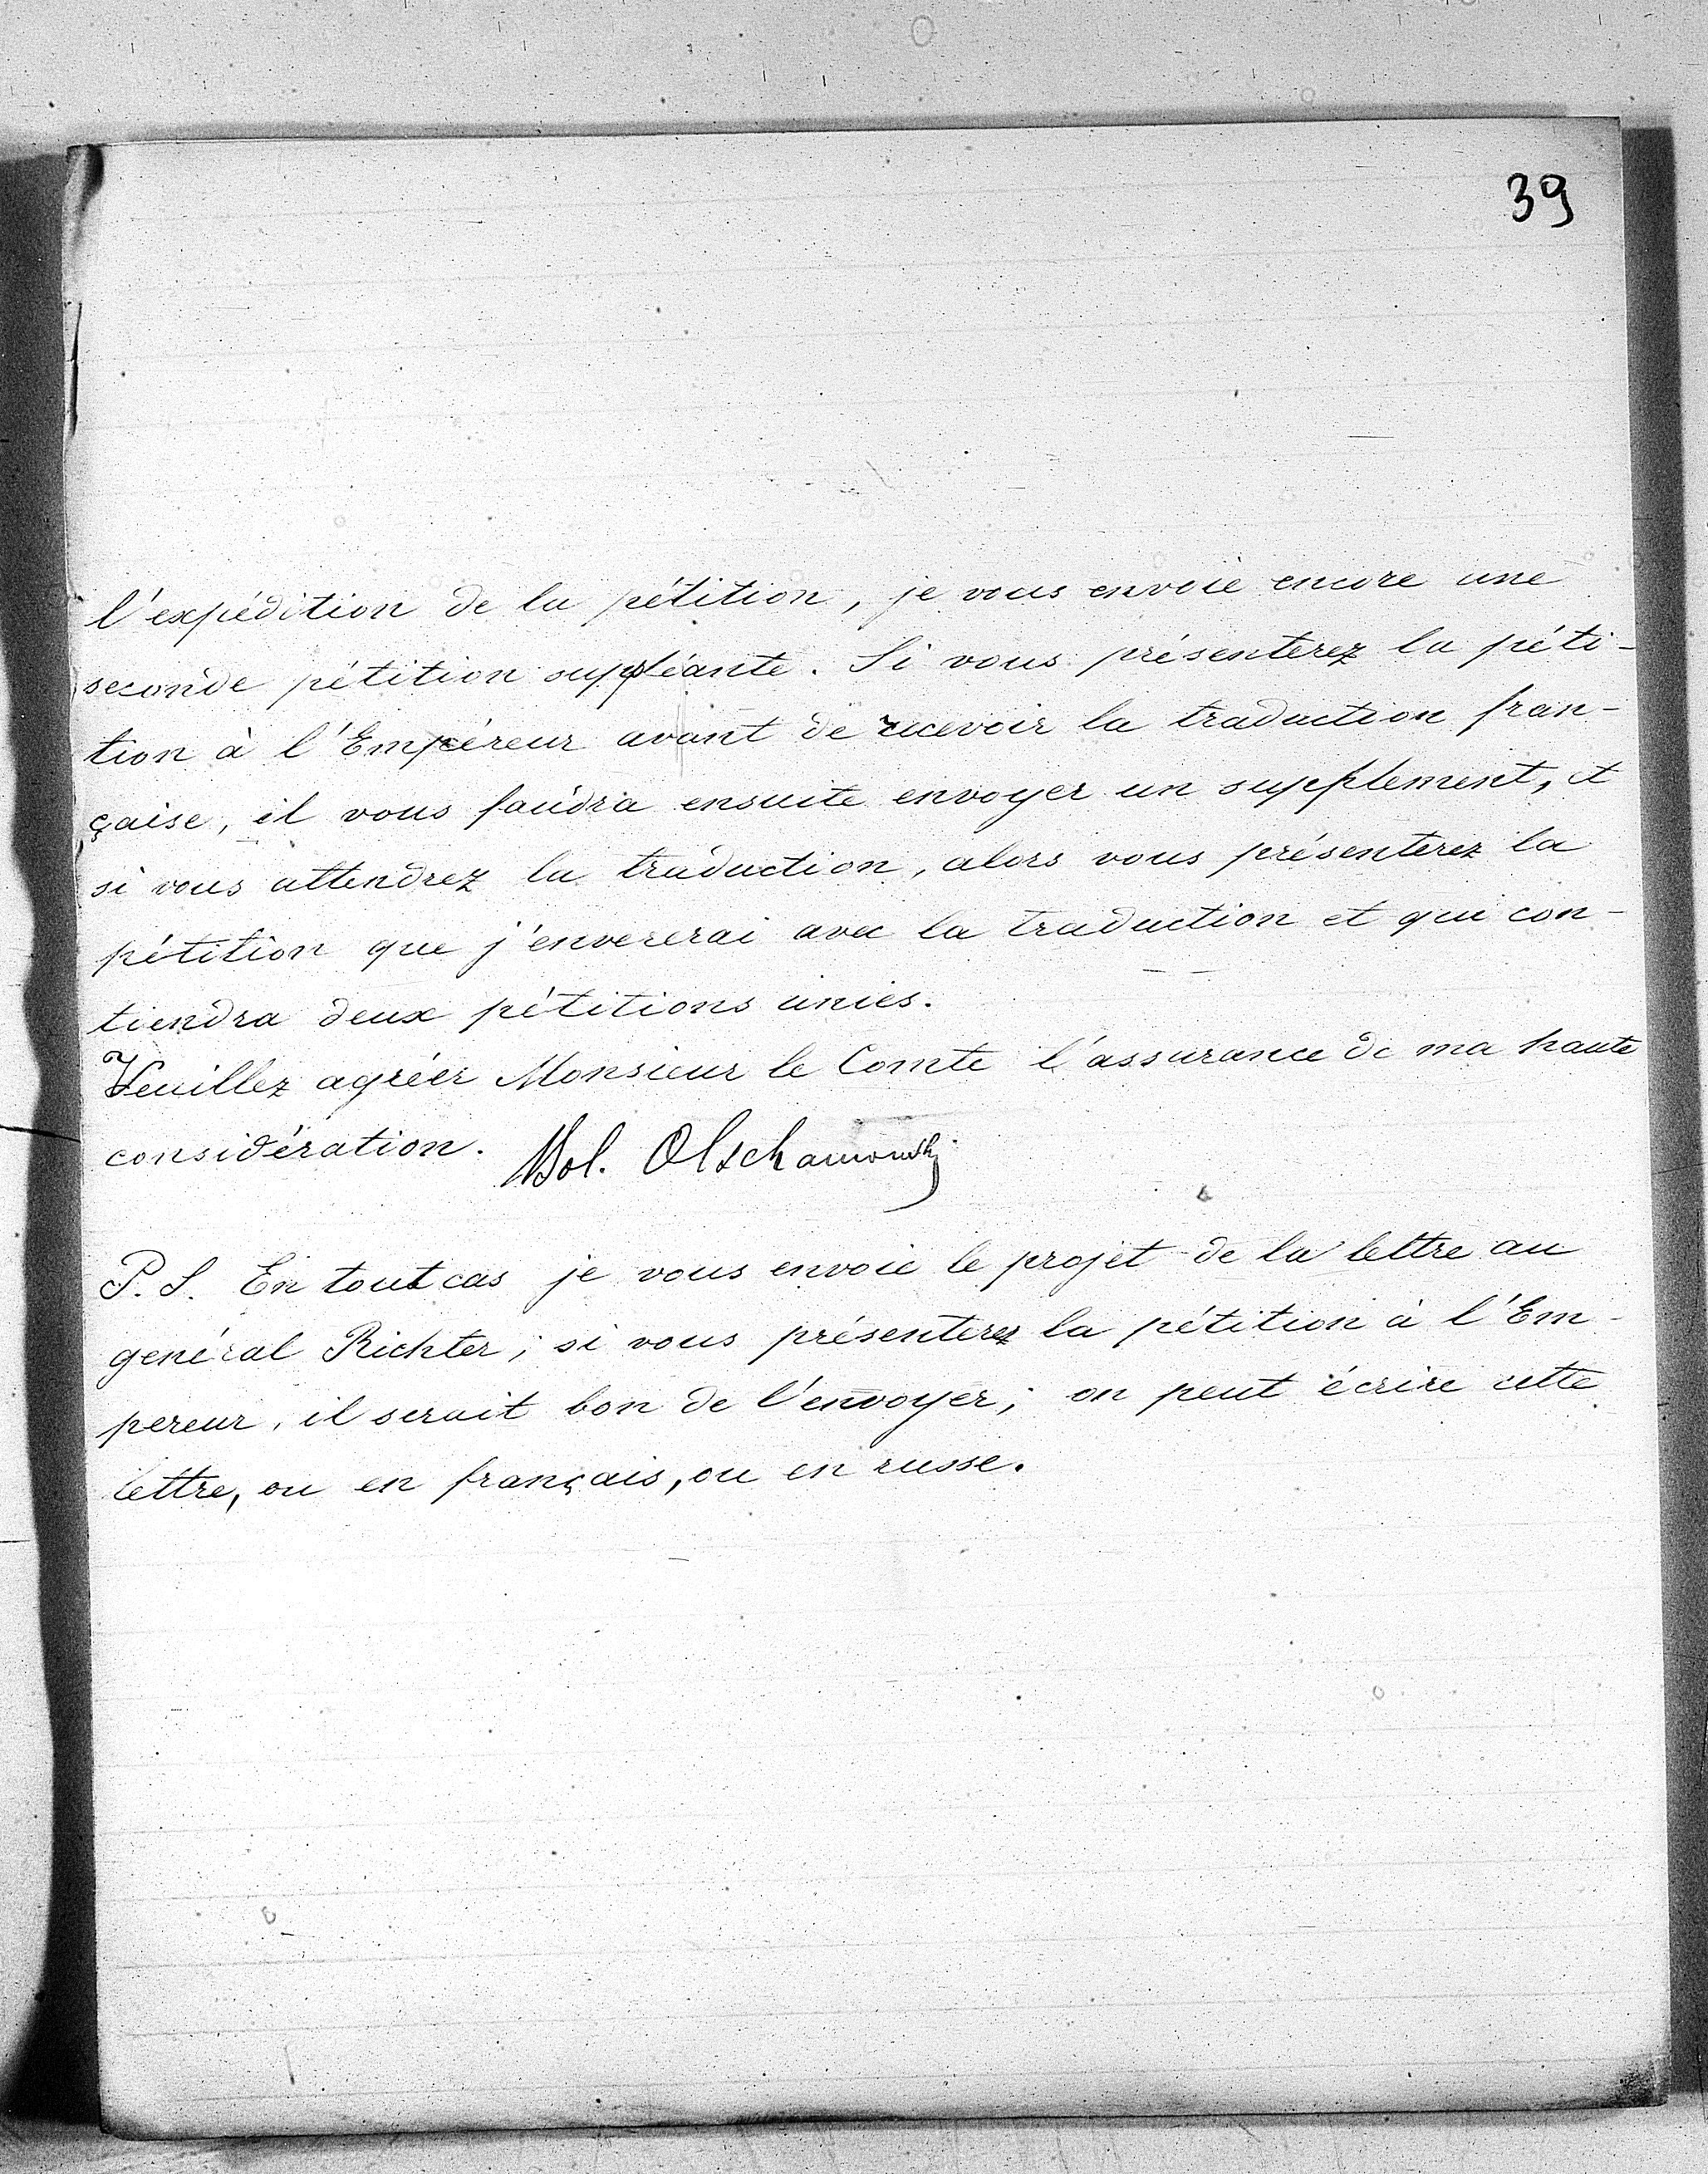 39
l'expédition de la pétition, je vous envoie encore une
seconde pétition suppléante. Si vous présenterez la péti-
tion à l'Empéreur avant de recevoir la traduction fran-
çaise, il vous faudra ensuite envoyer un supplement, et
si vous attendrez la traduction, alors vous présenterez la
pétition que j'enverrerai avec la traduction et qui con-
tiendra deux pétitions unies.
Veuillez agréer Monsieur le Comte l'assurance de ma haute
considération. Bol. Olschamowski
P.S. En tout cas je vous envoie le projet de la lettre au
général Richter; si vous présenterez la pétition à l'Em-
pereur, il serait bon de l'envoyer; on peut écrire cette
lettre, ou en français, ou en russe.